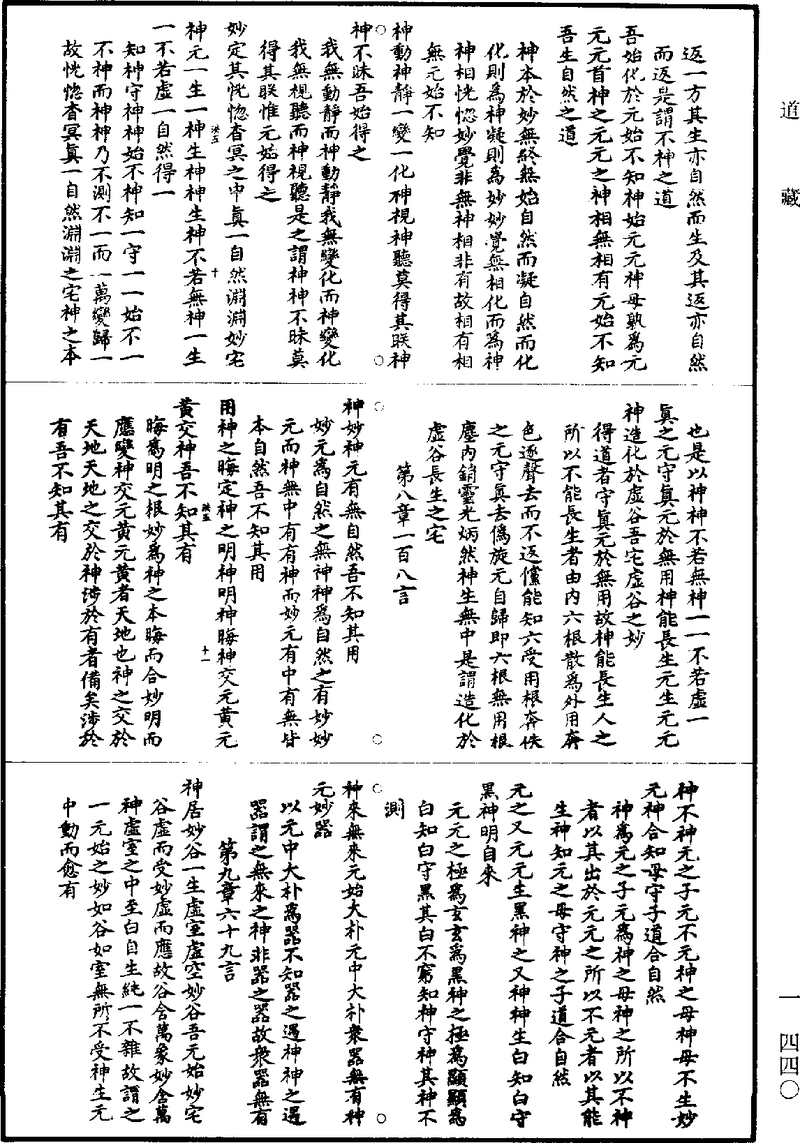 道藏
返一方其生亦自然而生及其返亦自然
而返是謂不神之道
吾始化於元始不知神始元元神母孰為元
元元首神之元元之神相無相有元始不知
吾生自然之道
神本於妙無終無始自然而凝自然而化
化則為神凝則為妙妙覺無相化而為神
神相恍惚妙覺非無神相非有故相有相
無元始不知
神動神靜一變一化神視神聽莫得其朕神
神不昧吾始得之
我無動靜而神動靜我無變化而神變化
我無視聽而神視聽是之謂神神不昧莫
得其朕惟元始得之
妙定其恍惚杳冥之中真一自然淵淵妙宅
神元一生一神生神神生神不若無神一生
一不若虛一自然得一
知神守神神始不神知一守一一始不一
不神而神神乃不測不一而一萬變歸一
故恍惚杳冥真一自然淵淵之宅神之本
也是以神神不若無神一一不若虛一
真之元守真元於無用神能長生元生元元
神造化於虛谷吾宅虛谷之妙
得道者守真元於無用故神能長生人之
所以不能長生者由內六根散為外用奔
色逐聲去而不返儻能知六受用根奔佚
之元守真去偽旋元自歸即六根無用根
塵內銷靈光炳然神生無中是謂造化於
虛谷長生之宅
第八章一百八言
神妙神元有無自然吾不知其用
妙元為自然之無神神為自然之有妙妙
元而神無中有有神而妙元有中有無皆
本自然吾不知其用
用神之晦定神之明神明神晦神交元黃元
黃交神吾不知其有
晦為明之根妙為神之本晦而合妙明而
應變神交元黃元黃者天地也神之交於
天地天地之交於神涉於有者備矣涉於
有吾不知其有
神不神元之子元不元神之母神母不生妙
元神合知母守子道合自然
神為元之子元為神之母神之所以不神
者以其出於元元之所以不元者以其能
生神知元之母守神之子道合自然
元之又元元生黑神之又神神生白知白守
黑神明自來
元元之極為玄玄為黑神之極為顯顯為
白知白守黑其白不窮知神守神其神不
測
神來無來元始大朴元中大朴衆器無有神
元妙器
以元中大朴為器不知器之遇神神之遇
器謂之無來之神非器之器故衆器無有
第九章六十九言
神居妙谷一生虛室虛空妙谷吾元始妙宅
谷虛而受妙虛而應故谷含萬象妙含萬
神虛室之中至白自生純一不雜故謂之
一元始之妙如谷如室無所不受神生元
中動而愈有
一 四四〇